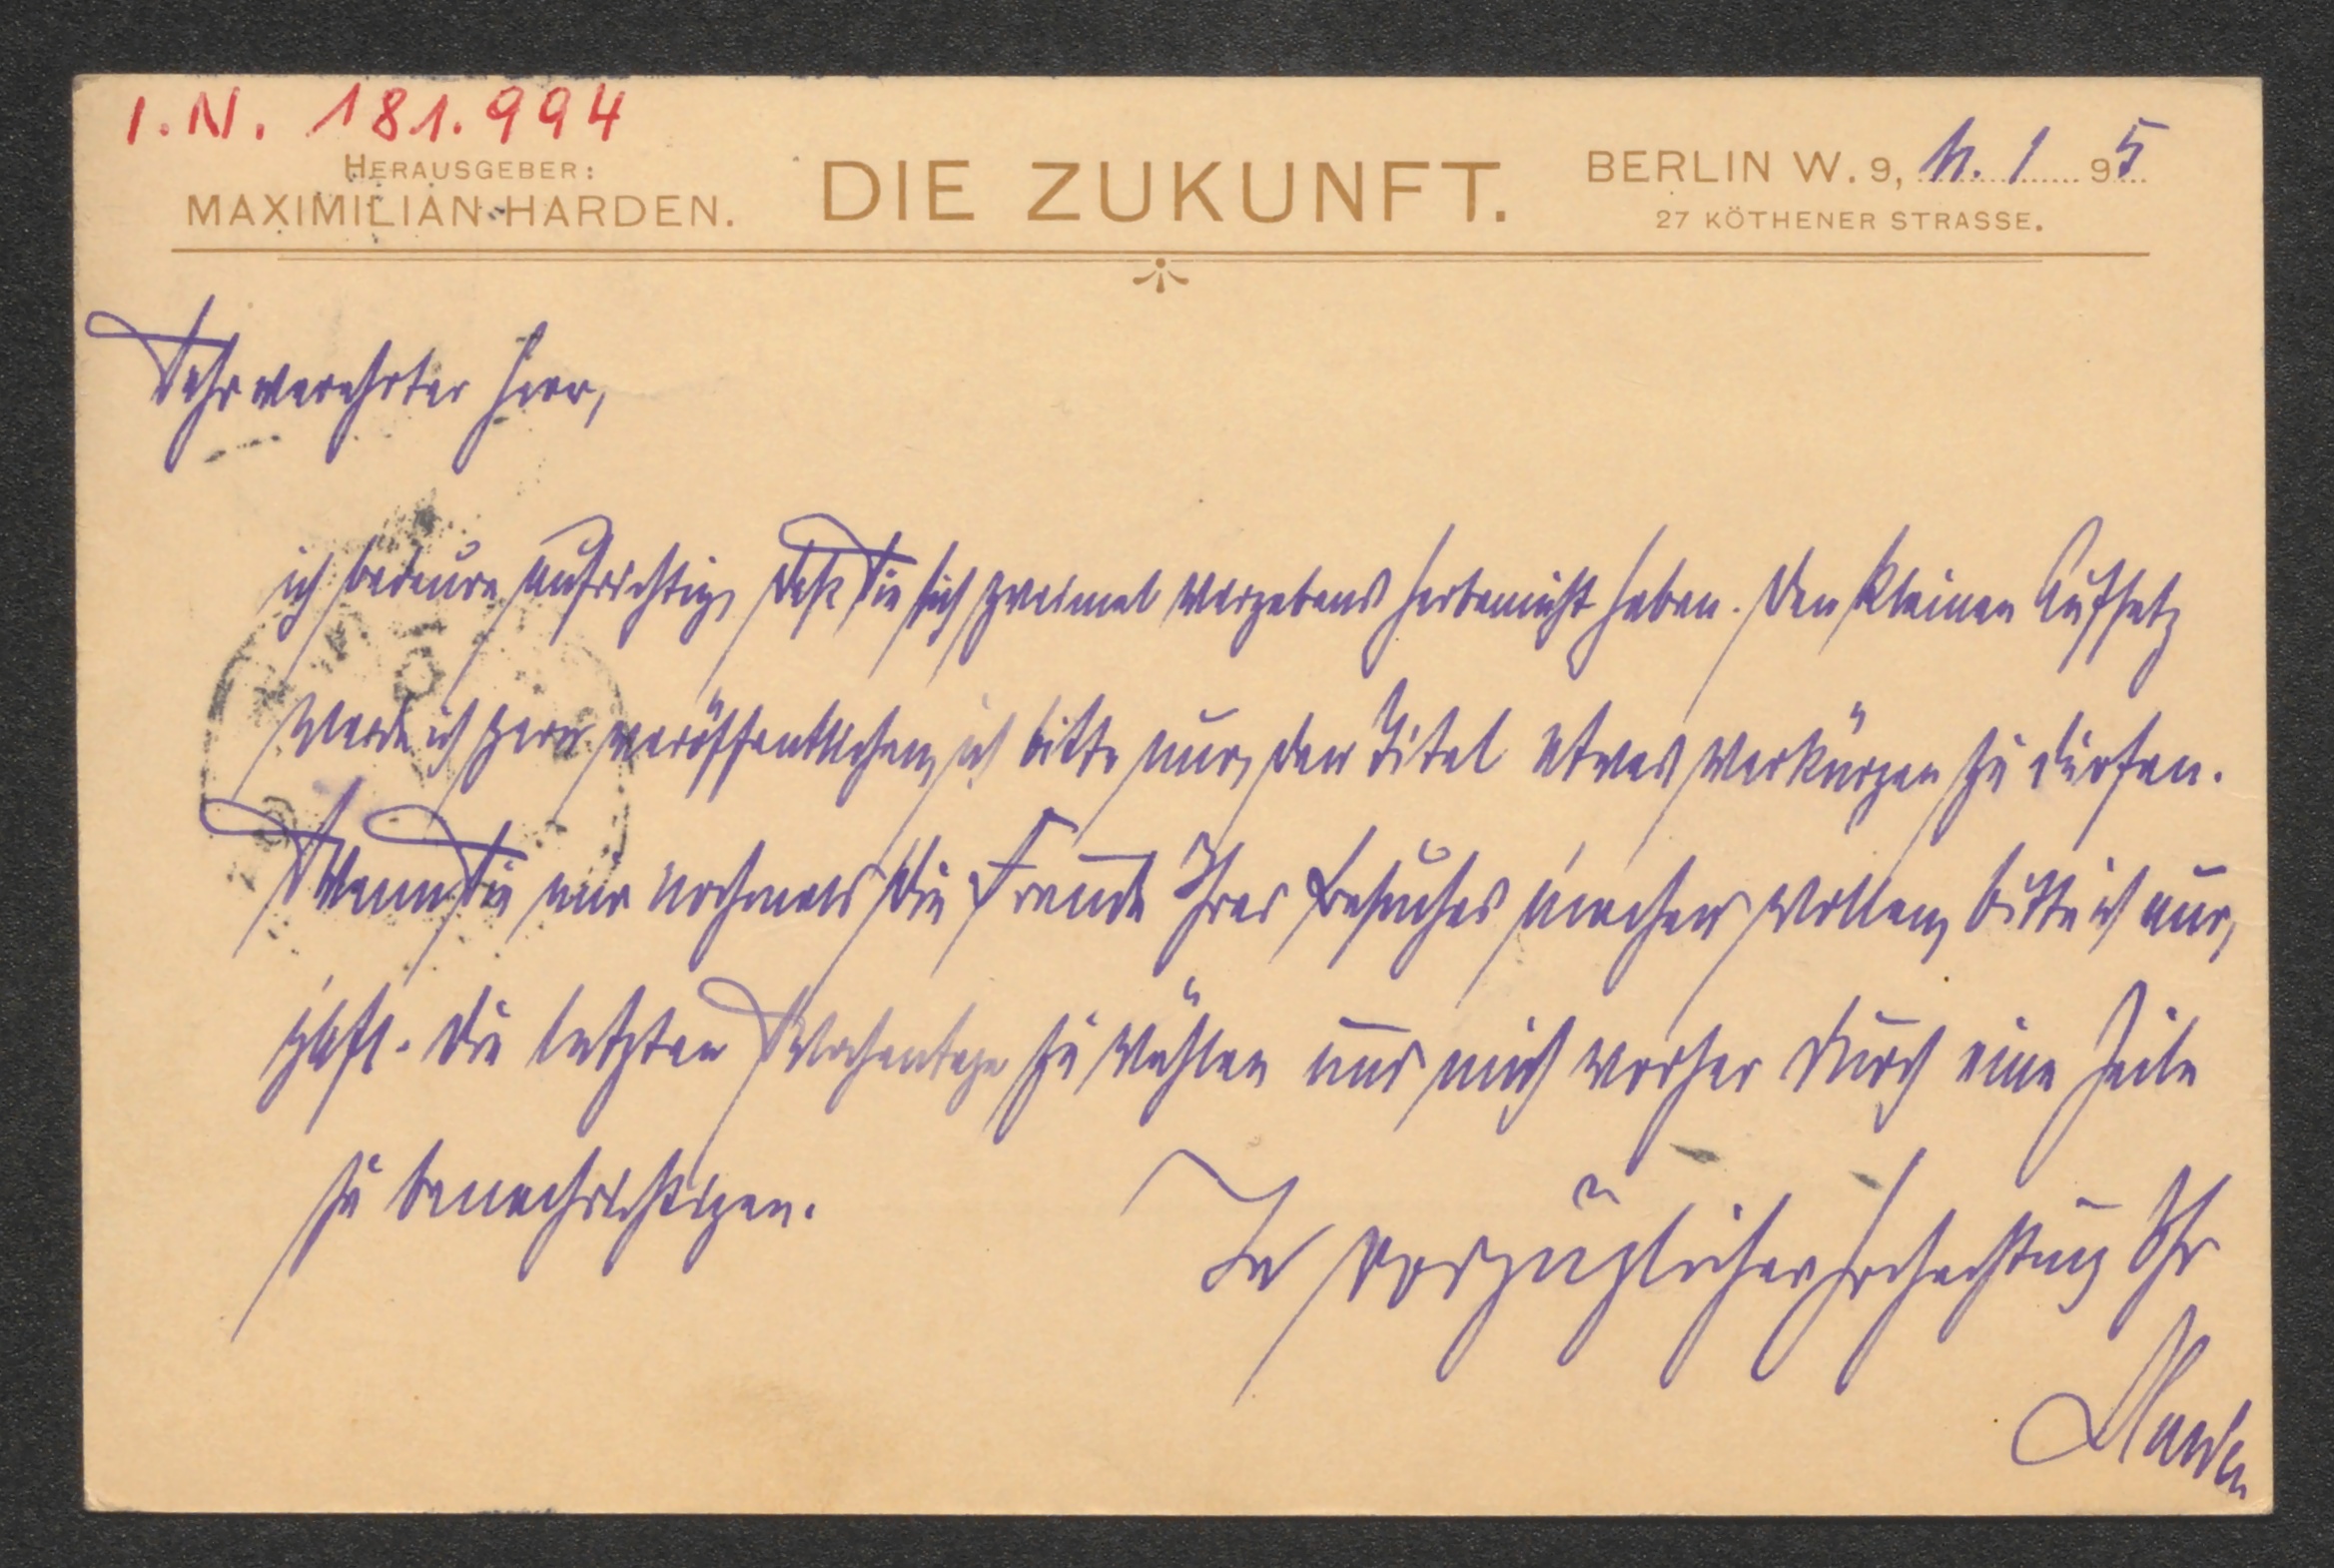 I.N. 181.994
HERAUSGEBER:
MAXIMILIAN HARDEN.
DIE ZUKUNFT.
BERLIN W. 9, 11. 1 95
27 KÖTHENER STRASSE.
Sehr verehrter Herr,
ich bedaure aufrichtig, daß Sie sich zweimal vergebens herbemüht haben. Den kleinen Aufsatz
werde ich gern veröffentlichen, ich bitte nur, den Titel etwas verkürzen zu dürfen.
Wenn Sie mir nochmals die Freude Ihres Besuches machen wollen, bitte ich nur,
gefl. die letzten Wochentage zu wählen und mich vorher durch eine Zeile
zu benachrichtigen.
In vorzüglicher Hochachtung Ihr
Harden